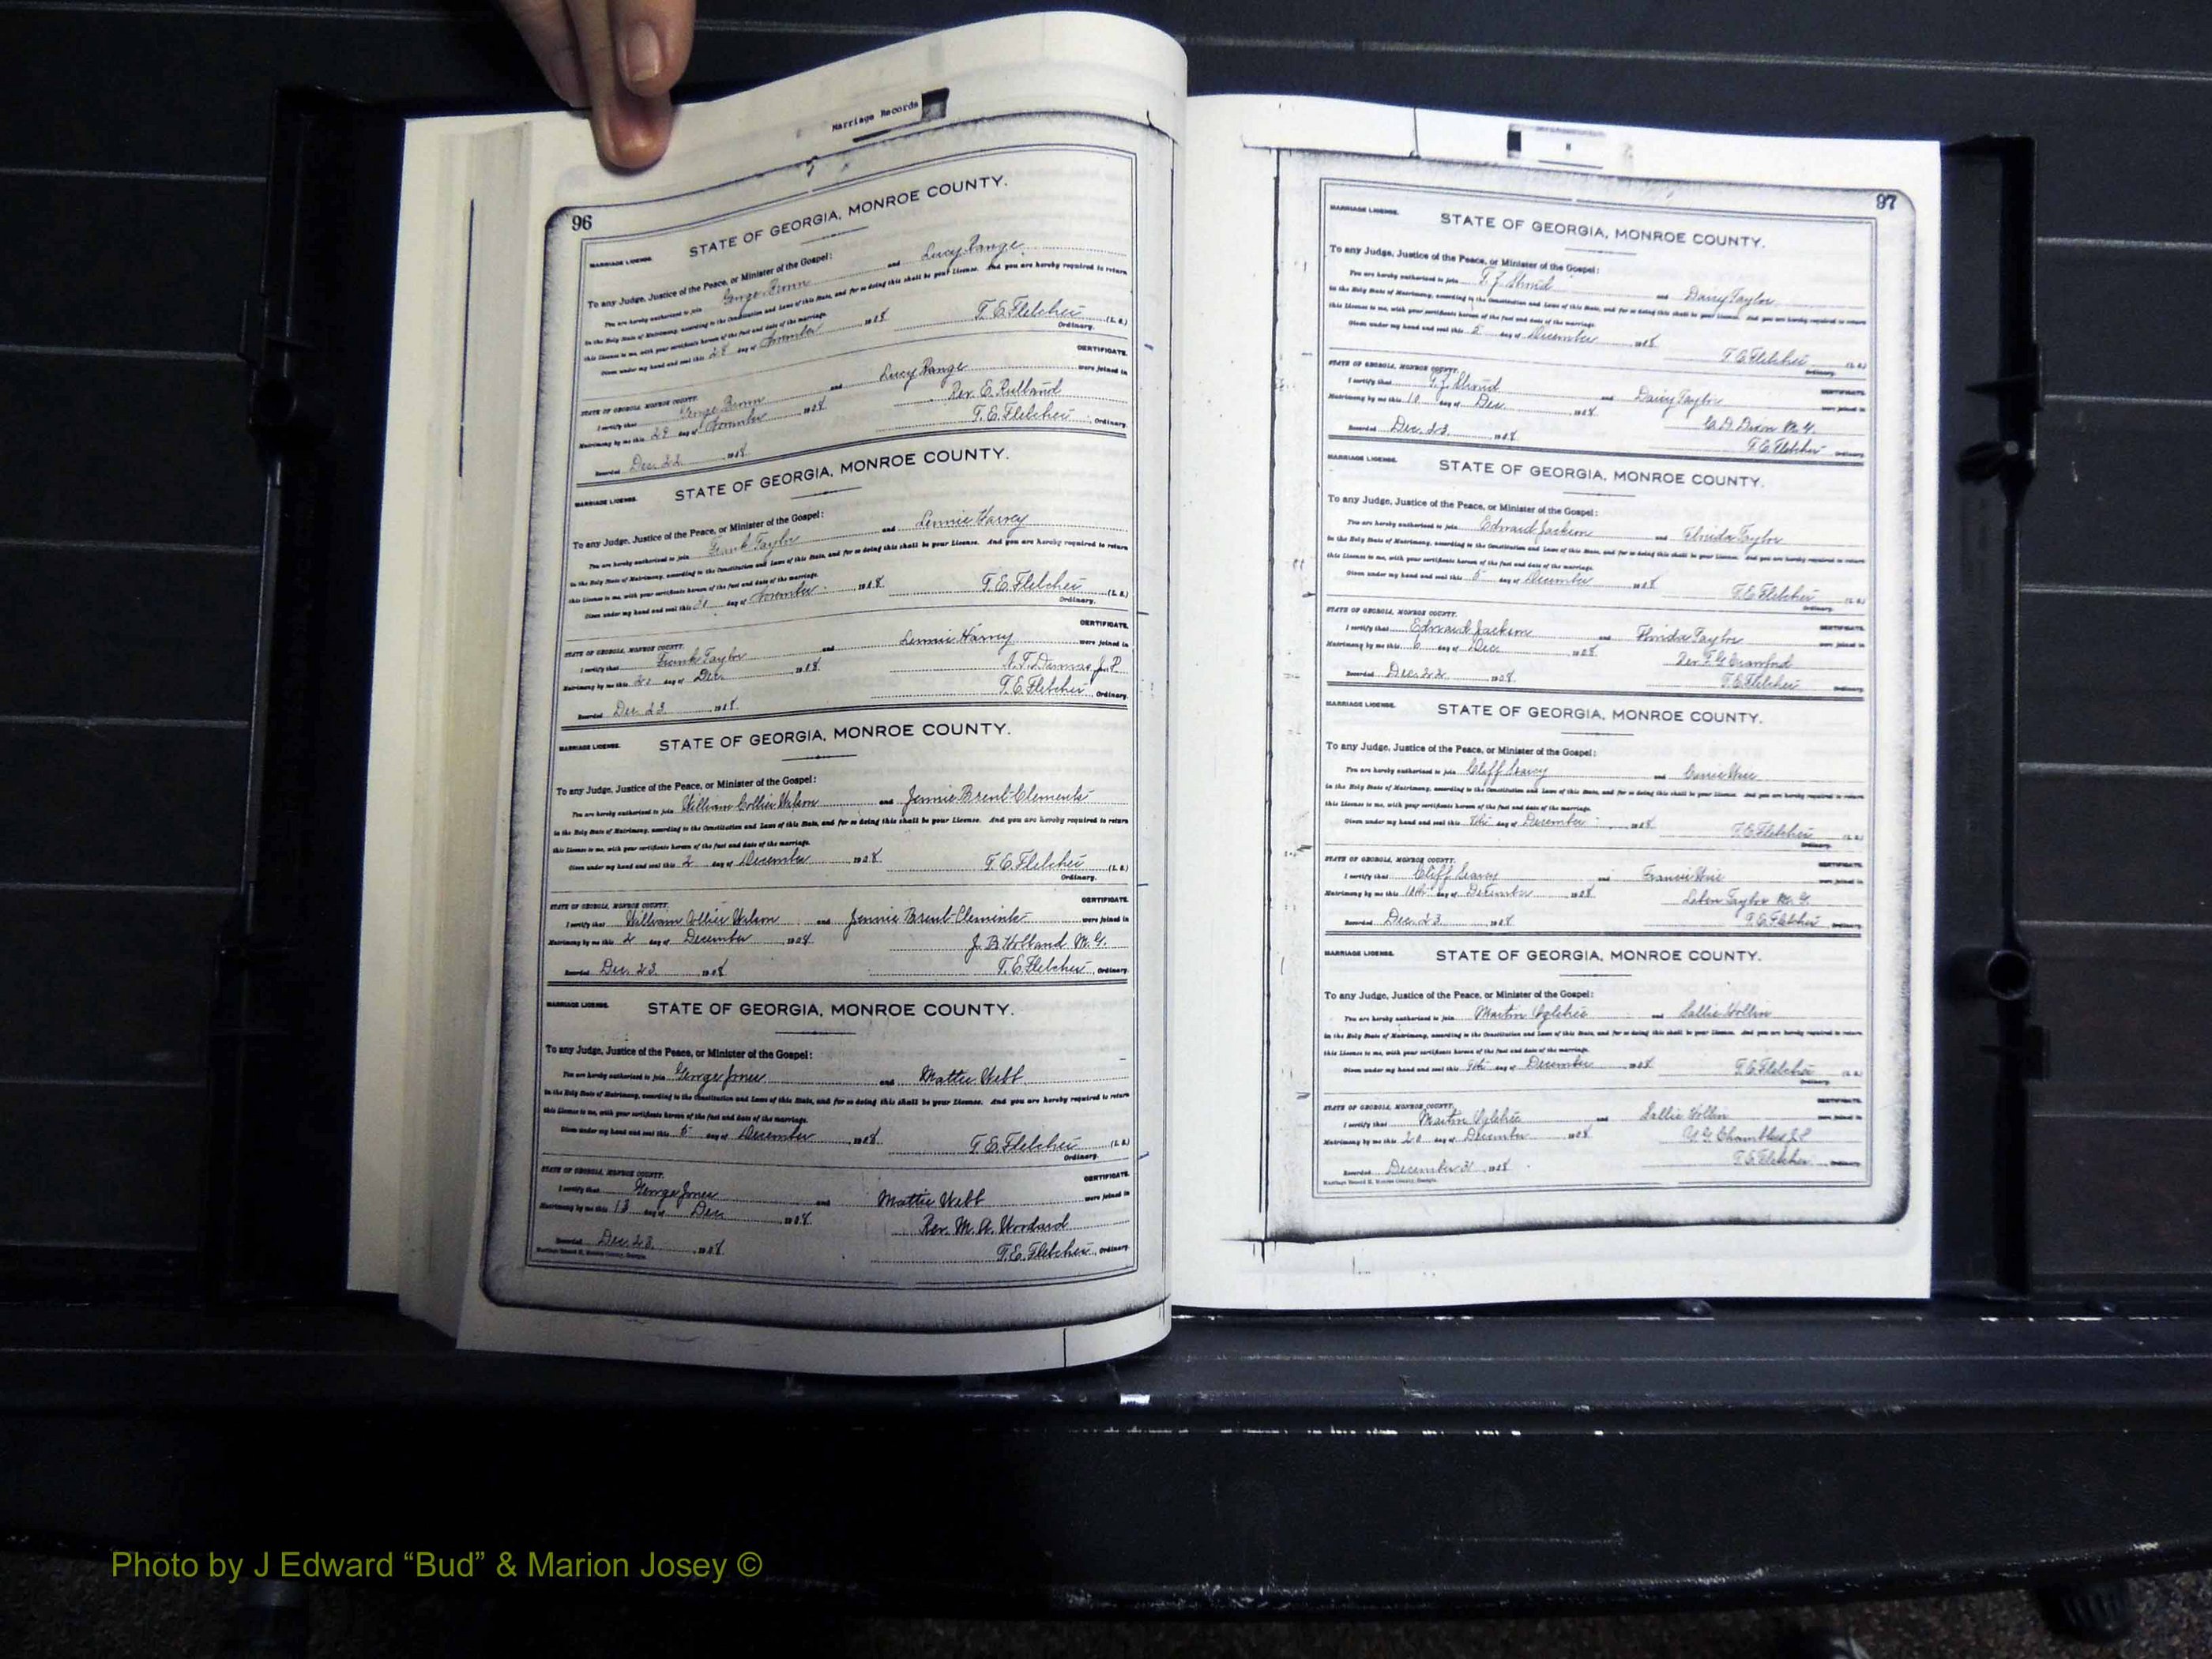 Marriage Records
96
STATE OF GEORGIA, MONROE COUNTY.
MARRIAGE LICENSE.
To any Judge, Justice of the Peace, or Minister of the Gospel:
You are hereby authorized to join George Brown and Lucy Range
in the Holy State of Matrimony, according to the Constitution and Laws of this State, and for so doing this shall be your License. And you are hereby required to return
this License to me, with your certificate hereon of the fact and date of the marriage.
Given under my hand and seal this 28 day of November 1908 T. E. Fletcher (L. S.)
Ordinary.
CERTIFICATE.
STATE OF GEORGIA, MONROE COUNTY.
I certify that George Brown and Lucy Range were joined in
Matrimony by me this 29 day of November 1908 Rev. E. Rutland
Recorded Dec. 22 1908 T. E. Fletcher, Ordinary.
MARRIAGE LICENSE. STATE OF GEORGIA, MONROE COUNTY.
To any Judge, Justice of the Peace, or Minister of the Gospel:
You are hereby authorized to join Frank Taylor and Lennie Harvey
in the Holy State of Matrimony, according to the Constitution and Laws of this State, and for so doing this shall be your License. And you are hereby required to return
this License to me, with your certificate hereon of the fact and date of the marriage.
Given under my hand and seal this day of November 1908 T. E. Fletcher (L. S.)
Ordinary.
CERTIFICATE.
STATE OF GEORGIA, MONROE COUNTY.
I certify that Frank Taylor and Lennie Harvey were joined in
Matrimony by me this day of Dec. 1908 J. P.
Recorded Dec. 23 1908 T. E. Fletcher, Ordinary.
MARRIAGE LICENSE. STATE OF GEORGIA, MONROE COUNTY.
To any Judge, Justice of the Peace, or Minister of the Gospel:
You are hereby authorized to join William Collier Wilson and Jennie Brent Clements
in the Holy State of Matrimony, according to the Constitution and Laws of this State, and for so doing this shall be your License. And you are hereby required to return
this License to me, with your certificate hereon of the fact and date of the marriage.
Given under my hand and seal this 2 day of December 1908 T. E. Fletcher (L. S.)
Ordinary.
STATE OF GEORGIA, MONROE COUNTY. CERTIFICATE.
I certify that William Collier Wilson and Jennie Brent Clements were joined in
Matrimony by me this 2 day of December 1908 J. B. Holland M. G.
Recorded Dec. 23 1908 T. E. Fletcher, Ordinary.
MARRIAGE LICENSE. STATE OF GEORGIA, MONROE COUNTY.
To any Judge, Justice of the Peace, or Minister of the Gospel:
You are hereby authorized to join George Jones and Mattie Webb
in the Holy State of Matrimony, according to the Constitution and Laws of this State, and for so doing this shall be your License. And you are hereby required to return
this License to me, with your certificate hereon of the fact and date of the marriage.
Given under my hand and seal this 5 day of December 1908 T. E. Fletcher (L. S.)
Ordinary.
STATE OF GEORGIA, MONROE COUNTY. CERTIFICATE.
I certify that George Jones and Mattie Webb were joined in
Matrimony by me this 13 day of Dec 1908 Rev. M. A. Woodard
Recorded Dec. 23 1908 T. E. Fletcher, Ordinary.
Marriage Record H, Monroe County, Georgia.
97
MARRIAGE LICENSE. STATE OF GEORGIA, MONROE COUNTY.
To any Judge, Justice of the Peace, or Minister of the Gospel:
You are hereby authorized to join and Daisy Taylor
in the Holy State of Matrimony, according to the Constitution and Laws of this State, and for so doing this shall be your License. And you are hereby required to return
this License to me, with your certificate hereon of the fact and date of the marriage.
Given under my hand and seal this 5 day of December 1908 T. E. Fletcher (L. S.)
Ordinary.
STATE OF GEORGIA, MONROE COUNTY. CERTIFICATE.
I certify that and Daisy Taylor were joined in
Matrimony by me this 10 day of Dec. 1908 C. D. Dixon M. G.
Recorded Dec. 23 1908 T. E. Fletcher Ordinary.
MARRIAGE LICENSE. STATE OF GEORGIA, MONROE COUNTY.
To any Judge, Justice of the Peace, or Minister of the Gospel:
You are hereby authorized to join Edward Jackson and Florida Taylor
in the Holy State of Matrimony, according to the Constitution and Laws of this State, and for so doing this shall be your License. And you are hereby required to return
this License to me, with your certificate hereon of the fact and date of the marriage.
Given under my hand and seal this 5 day of December 1908 T. E. Fletcher (L. S.)
Ordinary.
STATE OF GEORGIA, MONROE COUNTY. CERTIFICATE.
I certify that Edward Jackson and Florida Taylor were joined in
Matrimony by me this 6 day of Dec 1908 Rev. F. G. Crawford
Recorded Dec. 22 1908 T. E. Fletcher Ordinary.
MARRIAGE LICENSE. STATE OF GEORGIA, MONROE COUNTY.
To any Judge, Justice of the Peace, or Minister of the Gospel:
You are hereby authorized to join Cliff Searcy and
in the Holy State of Matrimony, according to the Constitution and Laws of this State, and for so doing this shall be your License. And you are hereby required to return
this License to me, with your certificate hereon of the fact and date of the marriage.
Given under my hand and seal this 8th day of December 1908 T. E. Fletcher (L. S.)
Ordinary.
STATE OF GEORGIA, MONROE COUNTY. CERTIFICATE.
I certify that Cliff Searcy and were joined in
Matrimony by me this day of December 1908 Taylor M. G.
Recorded Dec. 23 1908 T. E. Fletcher Ordinary.
MARRIAGE LICENSE. STATE OF GEORGIA, MONROE COUNTY.
To any Judge, Justice of the Peace, or Minister of the Gospel:
You are hereby authorized to join Martin Ogletree and Sallie
in the Holy State of Matrimony, according to the Constitution and Laws of this State, and for so doing this shall be your License. And you are hereby required to return
this License to me, with your certificate hereon of the fact and date of the marriage.
Given under my hand and seal this 9th day of December 1908 T. E. Fletcher (L. S.)
Ordinary.
STATE OF GEORGIA, MONROE COUNTY. CERTIFICATE.
I certify that Martin Ogletree and Sallie were joined in
Matrimony by me this 20 day of December 1908 Chambliss J. P.
Recorded December 31 1908 T. E. Fletcher Ordinary.
Marriage Record H, Monroe County, Georgia.
Photo by J Edward “Bud” & Marion Josey ©